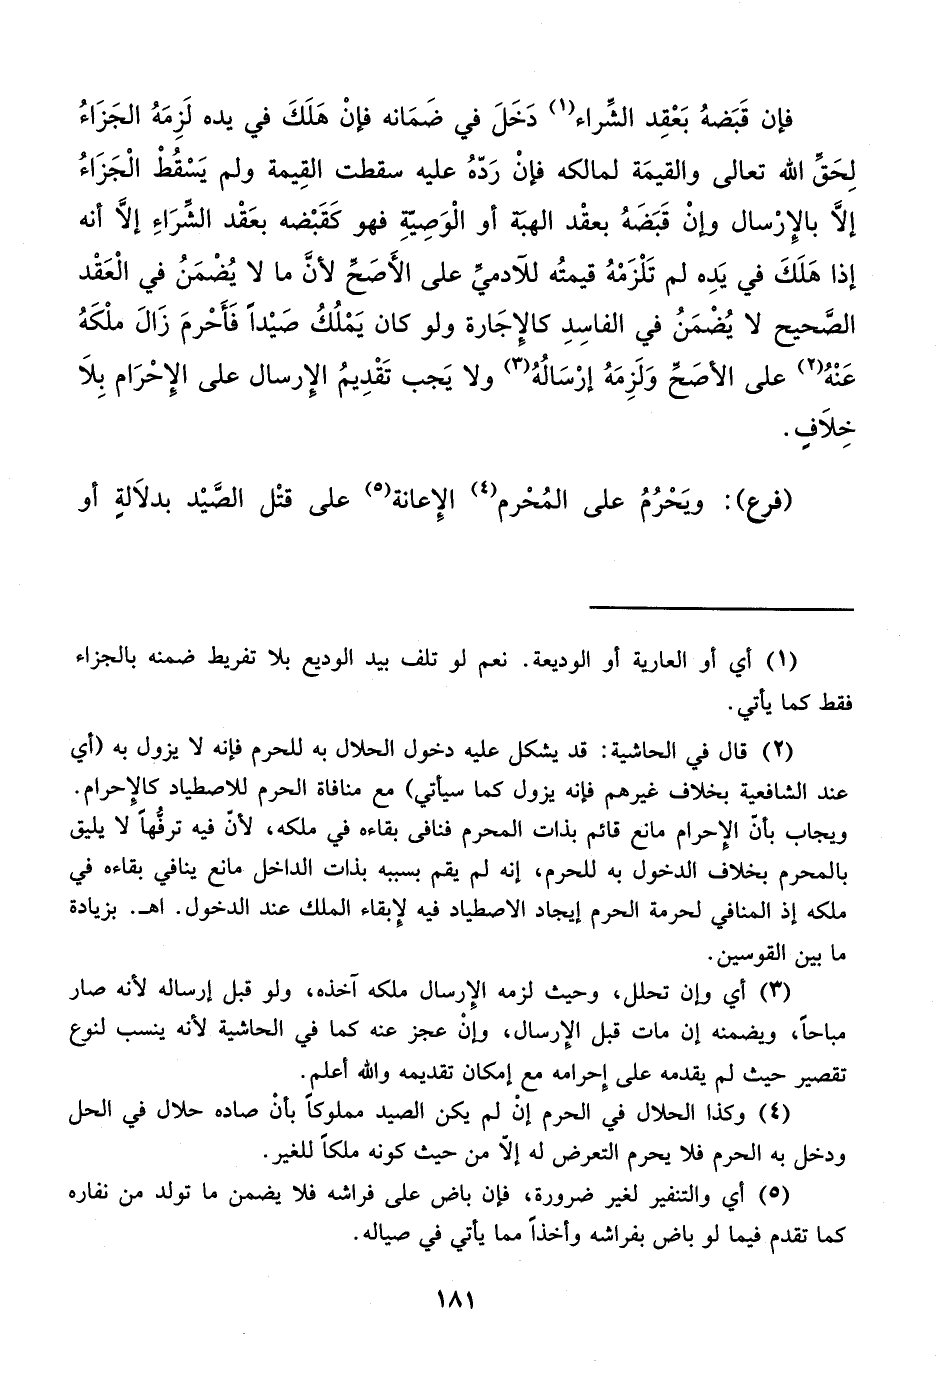 فإن قَبَضهُ بَعْقِد الشِّراء(١) دَخَلَ في ضَمَانه فإنْ هَلَكَ في يده لَزِمَهُ الجَزَاءُ
لِحَقِّ الله تعالى والقيمَة لمالكه فإنْ رَدّهُ عليه سقطت القِيمة ولم يَسْقُطْ الْجَزَاءُ
إلاَّ بالإِرْسال وإنْ قَبَضَهُ بعقْد الهبَة أو الْوَصِيّةِ فهو كَقَبْضه بعَقْد الشِّرَاءِ إلاَّ أنه
إذا هَلَكَ في يَدِه لم تَلْزَمْهُ قيمتُه للآدميِّ على الأَصَحِّ لأنَّ ما لا يُضْمَنُ في الْعَقْد
الصَّحيح لا يُضْمَنُ في الفاسِدِ كالإِجَارة ولو كان يَمْلُكُ صَيْداً فَأَحْرمَ زَالَ ملْكَهُ
عَنْهُ(٢) على الأصَحِّ وَلَزِمَهُ إرْسَالُهُ(٣) ولا يَجب تَقْدِيمُ الإِرسال على الإِحْرَام بِلَا
خِلَافٍ.
(فرع): ويَحْرُمُ على المُحْرم(٤) الإِعانة(٥) على قتْل الصَّيْد بدلَالةٍ أو
(١) أي أو العارية أو الوديعة. نعم لو تلف بيد الوديع بلا تفريط ضمنه بالجزاء
فقط كما يأتي.
(٢) قال في الحاشية: قد يشكل عليه دخول الحلال به للحرم فإنه لا يزول به (أي
عند الشافعية بخلاف غيرهم فإنه يزول كما سيأتي) مع منافاة الحرم للاصطياد كالإِحرام.
ويجاب بأنّ الإِحرام مانع قائم بذات المحرم فنافى بقاءه في ملكه، لأنّ فيه ترفُّهاً لا يليق
بالمحرم بخلاف الدخول به للحرم، إنه لم يقم بسببه بذات الداخل مانع ينافي بقاءه في
ملكه إذ المنافي لحرمة الحرم إيجاد الاصطياد فيه لإِبقاء الملك عند الدخول. اهـ. بزيادة
ما بين القوسين.
(٣) أي وإن تحلل، وحيث لزمه الإِرسال ملكه آخذه، ولو قبل إرساله لأنه صار
مباحاً، ويضمنه إن مات قبل الإِرسال، وإنْ عجز عنه كما في الحاشية لأنه ينسب لنوع
تقصير حيث لم يقدمه على إحرامه مع إمكان تقديمه والله أعلم.
(٤) وكذا الحلال في الحرم إنْ لم يكن الصيد مملوكاً بأنْ صاده حلال في الحل
ودخل به الحرم فلا يحرم التعرض له إلاّ من حيث كونه ملكاً للغير.
(٥) أي والتنفير لغير ضرورة، فإن باض على فراشه فلا يضمن ما تولد من نفاره
كما تقدم فيما لو باض بفراشه وأخذاً مما يأتي في صياله.
١٨١